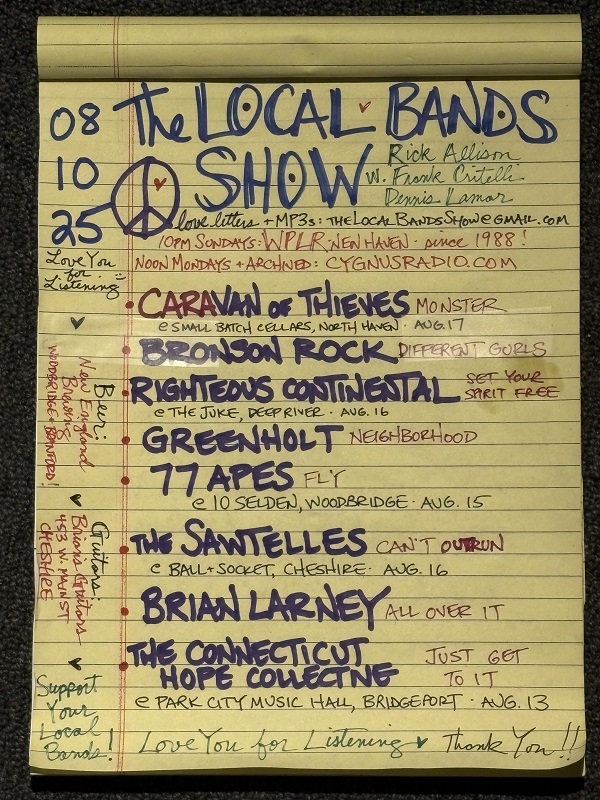 08
10
25
The LOCAL BANDS
SHOW
Rick Allison
w. Frank Critelli
Dennis Lamar
love letters + MP3s: THELOCALBANDSSHOW@GMAIL.COM
10PM SUNDAYS: WPLR: NEW HAVEN · since 1988!
NOON MONDAYS + ARCHIVED: CYGNUSRADIO.COM
Love You
for
Listening
• CARAVAN OF THIEVES MONSTER
@ SMALL BATCH CELLARS, NORTH HAVEN · AUG.17
• BRONSON ROCK DIFFERENT GURLS
• RIGHTEOUS CONTINENTAL SET YOUR
SPIRIT FREE
@ THE JUKE, DEEP RIVER · AUG. 16
• GREENHOLT NEIGHBORHOOD
• 77 APES FLY
@ 10 SELDEN, WOODBRIDGE · AUG. 15
• THE SAWTELLES CAN'T OUTRUN
@ BALL + SOCKET, CHESHIRE · AUG. 16
• BRIAN LARNEY ALL OVER IT
• THE CONNECTICUT
HOPE COLLECTIVE
JUST GET
TO IT
@ PARK CITY MUSIC HALL, BRIDGEPORT · AUG. 13
Beer:
New England
Brewing
WOODBRIDGE + BRANFORD!
Guitars:
Brian's Guitars
453 W. MAIN ST
CHESHIRE
Support
Your
Local
Bands!
Love You for Listening
Thank You!!